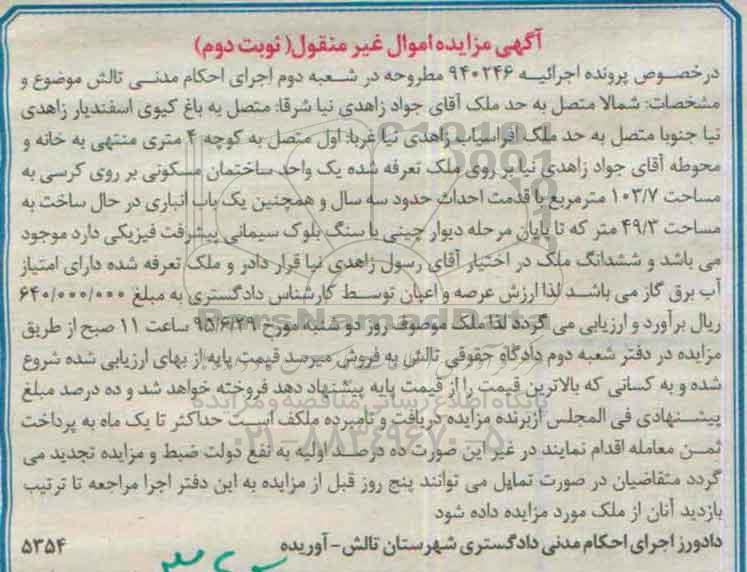 آگهی مزایده اموال غیر منقول( نوبت دوم)
درخصوص پرونده اجرائیه ۹۴۰۲۴۶ مطروحه در شعبه دوم اجرای احکام مدنی تالش موضوع و
مشخصات: شمالا متصل به حد ملک آقای جواد زاهدی نیا شرقا: متصل به باغ کیوی اسفندیار زاهدی
نیا جنوبا متصل به حد ملک افراسیاب زاهدی نیا غربا: اول متصل به کوچه ۴ متری منتهی به خانه و
محوطه آقای جواد زاهدی نیا بر روی ملک تعرفه شده یک واحد ساختمان مسکونی بر روی کرسی به
مساحت ۱۰۳/۷ مترمربع با قدمت احداث حدود سه سال و همچنین یک باب انباری در حال ساخت به
مساحت ۴۹/۳ متر که تا پایان مرحله دیوار چینی با سنگ بلوک سیمانی پیشرفت فیزیکی دارد موجود
می باشد و ششدانگ ملک در اختیار آقای رسول زاهدی نیا قرار دادر و ملک تعرفه شده دارای امتیاز
آب برق گاز می باشد لذا ارزش عرصه و اعیان توسط کارشناس دادگستری به مبلغ ۶۴۰/۰۰۰/۰۰۰
ریال برآورد و ارزیابی می گردد لذا ملک موصوف روز دو شنبه مورخ ۹۵/۶/۲۹ ساعت ۱۱ صبح از طریق
مزایده در دفتر شعبه دوم دادگاه حقوقی تالش به فروش میرسد قیمت پایه از بهای ارزیابی شده شروع
شده و به کسانی که بالاترین قیمت را از قیمت پایه پیشنهاد دهد فروخته خواهد شد و ده درصد مبلغ
پیشنهادی فی المجلس ازبرنده مزایده دریافت و نامبرده ملکف است حداکثر تا یک ماه به پرداخت
ثمن معامله اقدام نمایند در غیر این صورت ده درصد اولیه به نفع دولت ضبط و مزایده تجدید می
گردد متقاضیان در صورت تمایل می توانند پنج روز قبل از مزایده به این دفتر اجرا مراجعه تا ترتیب
بازدید آنان از ملک مورد مزایده داده شود
دادورز اجرای احکام مدنی دادگستری شهرستان تالش- آوریده ۵۳۵۴
ParsNamadData
پایگاه اطلاع رسانی مناقصه و مزایده
۰۲۱-۸۸۳۴۹۶۷۰-۵